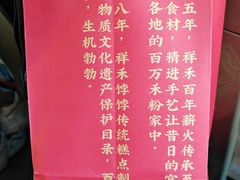 五年,祥禾百年薪火传承至
食材,精进手艺让昔日的宫
各地的百万禾粉家中。
八年,祥禾饽饽传统糕点制
物质文化遗产保护目录,百
,生机勃勃。